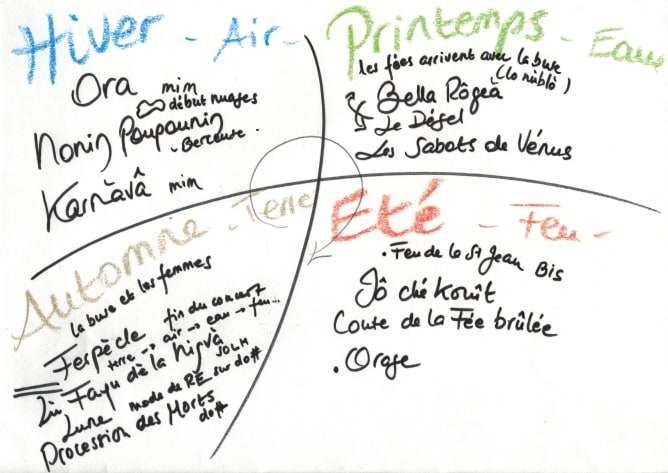 Hiver - Air -
Ora mim
début nuages
Nonin Poupounin
- Berceuse.
Karnàvâ mim
Printemps - Eau
les fées arrivent avec la buse
(lo nublò)
Bella Rôgeà
Le Dégel
Les Sabots de Vénus
Automne - Terre
la buse et les femmes
Fespècle fin du concert
terre → air → eau → feu...
Li Fayu dè la Nigvà
Lune mode de RE sur do#
SOL H
Procession des Morts
do#
Eté - Feu -
. Feu de la St Jean Bis
Jô ché Kouît
Conte de la Fée brûlée
. Orage